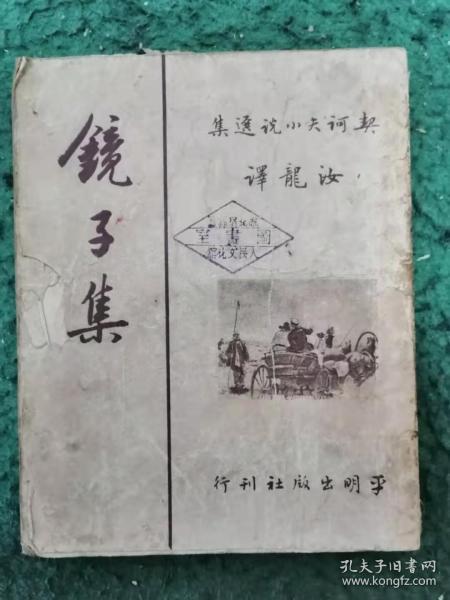 鏡子集
契訶夫小说選集
汝龍譯
圖書室
人民文化館
平明出版社刊行
孔夫子旧书网
www.kongfz.com